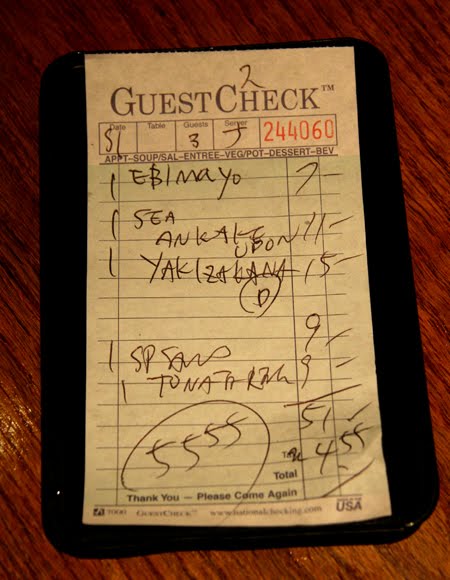 2
GUESTCHECK™
Date Table Guests Server
3 J 244060
APPT-SOUP/SAL-ENTREE-VEG/POT-DESSERT-BEV
1 EBI MAYO 7-
1 SEA
ANKAKE 11-
UDON
1 YAKIZAKANA 15-
D
9-
1 SP SAND 9-
1 TUNA
51-
Tax 4.55
5555
Total
Thank You — Please Come Again
7000 GUESTCHECK™ www.nationalchecking.com MADE IN USA